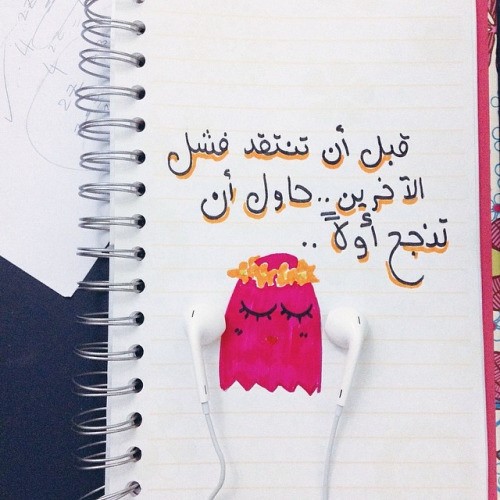 قبل أن تنتقد فشل
الآخرين .. حاول أن
تنجح أولاً ..